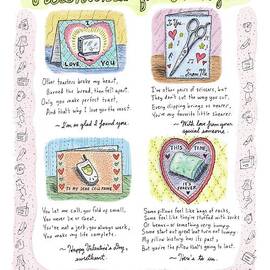 I
LOVE
YOU
To You
From Me
Other toasters broke my heart,
Burned the bread, then fell apart.
Only you make perfect toast,
And that's why I love you the most.
~ I'm so glad I found you.
I've other pairs of scissors, but
They don't cut the way you cut.
Every clipping brings us nearer.
You're my favorite little shearer.
~ With love from your
special someone.
TO MY DEAR CELL PHONE
THIS TIME
FOREVER
You let me call, you fold up small,
You never lie or cheat.
You're not a jerk, you always work,
You make my life complete.
~ Happy Valentine's Day,
sweetheart.
Some pillows feel like bags of rocks,
Some feel like they're stuffed with socks
Or beans — or something very bumpy.
Some start out great but soon turn lumpy
My pillow history has its past,
But you're the pillow that's going to last.
~ Here's to us.